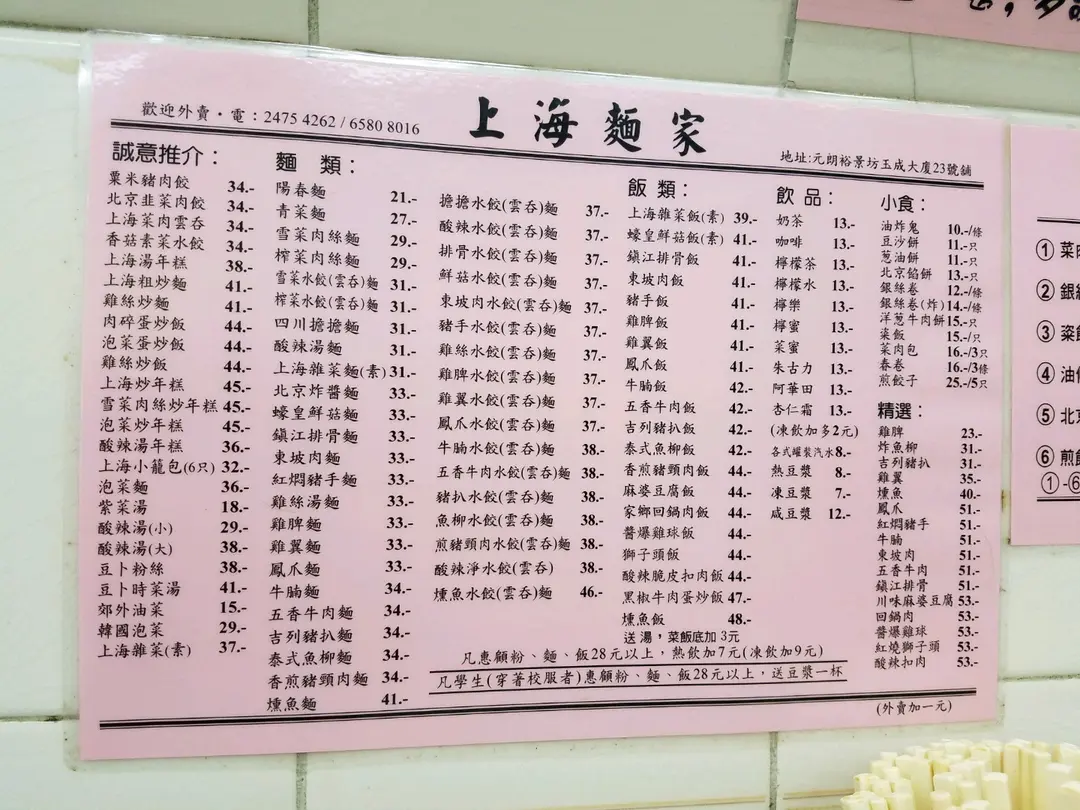 歡迎外賣·電：2475 4262 / 6580 8016
上海麵家
地址:元朗裕景坊玉成大廈23號舖
誠意推介：
粟米豬肉餃 34.-
北京韭菜肉餃 34.-
上海菜肉雲吞 34.-
香菇素菜水餃 34.-
上海湯年糕 38.-
上海粗炒麵 41.-
雞絲炒麵 41.-
肉碎蛋炒飯 44.-
泡菜蛋炒飯 44.-
雞絲炒飯 44.-
上海炒年糕 45.-
雪菜肉絲炒年糕 45.-
泡菜炒年糕 45.-
酸辣湯年糕 36.-
上海小籠包(6只) 32.-
泡菜麵 36.-
紫菜湯 18.-
酸辣湯(小) 29.-
酸辣湯(大) 38.-
豆卜粉絲 38.-
豆卜時菜湯 41.-
郊外油菜 15.-
韓國泡菜 29.-
上海雜菜(素) 37.-
麵 類：
陽春麵 21.-
青菜麵 27.-
雪菜肉絲麵 29.-
榨菜肉絲麵 29.-
雪菜水餃(雲吞)麵 31.-
榨菜水餃(雲吞)麵 31.-
四川擔擔麵 31.-
酸辣湯麵 31.-
上海雜菜麵(素) 31.-
北京炸醬麵 33.-
蠔皇鮮菇麵 33.-
鎮江排骨麵 33.-
東坡肉麵 33.-
紅燜豬手麵 33.-
雞絲湯麵 33.-
雞脾麵 33.-
雞翼麵 33.-
鳳爪麵 33.-
牛腩麵 34.-
五香牛肉麵 34.-
吉列豬扒麵 34.-
泰式魚柳麵 34.-
香煎豬頸肉麵 34.-
燻魚麵 41.-
擔擔水餃(雲吞)麵 37.-
酸辣水餃(雲吞)麵 37.-
排骨水餃(雲吞)麵 37.-
鮮菇水餃(雲吞)麵 37.-
東坡肉水餃(雲吞)麵 37.-
豬手水餃(雲吞)麵 37.-
雞絲水餃(雲吞)麵 37.-
雞脾水餃(雲吞)麵 37.-
雞翼水餃(雲吞)麵 37.-
鳳爪水餃(雲吞)麵 37.-
牛腩水餃(雲吞)麵 38.-
五香牛肉水餃(雲吞)麵 38.-
豬扒水餃(雲吞)麵 38.-
魚柳水餃(雲吞)麵 38.-
煎豬頸肉水餃(雲吞)麵 38.-
酸辣淨水餃(雲吞) 38.-
燻魚水餃(雲吞)麵 46.-
飯 類：
上海雜菜飯(素) 39.-
蠔皇鮮菇飯(素) 41.-
鎮江排骨飯 41.-
東坡肉飯 41.-
豬手飯 41.-
雞脾飯 41.-
雞翼飯 41.-
鳳爪飯 41.-
牛腩飯 42.-
五香牛肉飯 42.-
吉列豬扒飯 42.-
泰式魚柳飯 42.-
香煎豬頸肉飯 44.-
麻婆豆腐飯 44.-
家鄉回鍋肉飯 44.-
醬爆雞球飯 44.-
獅子頭飯 44.-
酸辣脆皮扣肉飯 44.-
黑椒牛肉蛋炒飯 47.-
燻魚飯 48.-
送湯，菜飯底加 3元
飲 品：
奶茶 13.-
咖啡 13.-
檸檬茶 13.-
檸檬水 13.-
檸樂 13.-
檸蜜 13.-
菜蜜 13.-
朱古力 13.-
阿華田 13.-
杏仁霜 13.-
(凍飲加多2元)
各式罐裝汽水 8.-
熱豆漿 8.-
凍豆漿 7.-
咸豆漿 12.-
小食：
油炸鬼 10.-/條
豆沙餅 11.-只
葱油餅 11.-只
北京餡餅 13.-只
銀絲卷 12.-/條
銀絲卷(炸) 14.-/條
洋葱牛肉餅 15.-只
粢飯 15.-/只
菜肉包 16.-/3只
春卷 16.-/3條
煎餃子 25.-/5只
精選：
雞脾 23.-
炸魚柳 31.-
吉列豬扒 31.-
雞翼 35.-
燻魚 40.-
鳳爪 51.-
紅燜豬手 51.-
牛腩 51.-
東坡肉 51.-
五香牛肉 51.-
鎮江排骨 51.-
川味麻婆豆腐 53.-
回鍋肉 53.-
醬爆雞球 53.-
紅燒獅子頭 53.-
酸辣扣肉 53.-
凡惠顧粉、麵、飯28元以上，熱飲加7元(凍飲加9元)
凡學生(穿著校服者)惠顧粉、麵、飯28元以上，送豆漿一杯
(外賣加一元)
① 菜肉
② 銀絲
③ 粢飯
④ 油
⑤ 北京
⑥ 煎餃
①-⑥